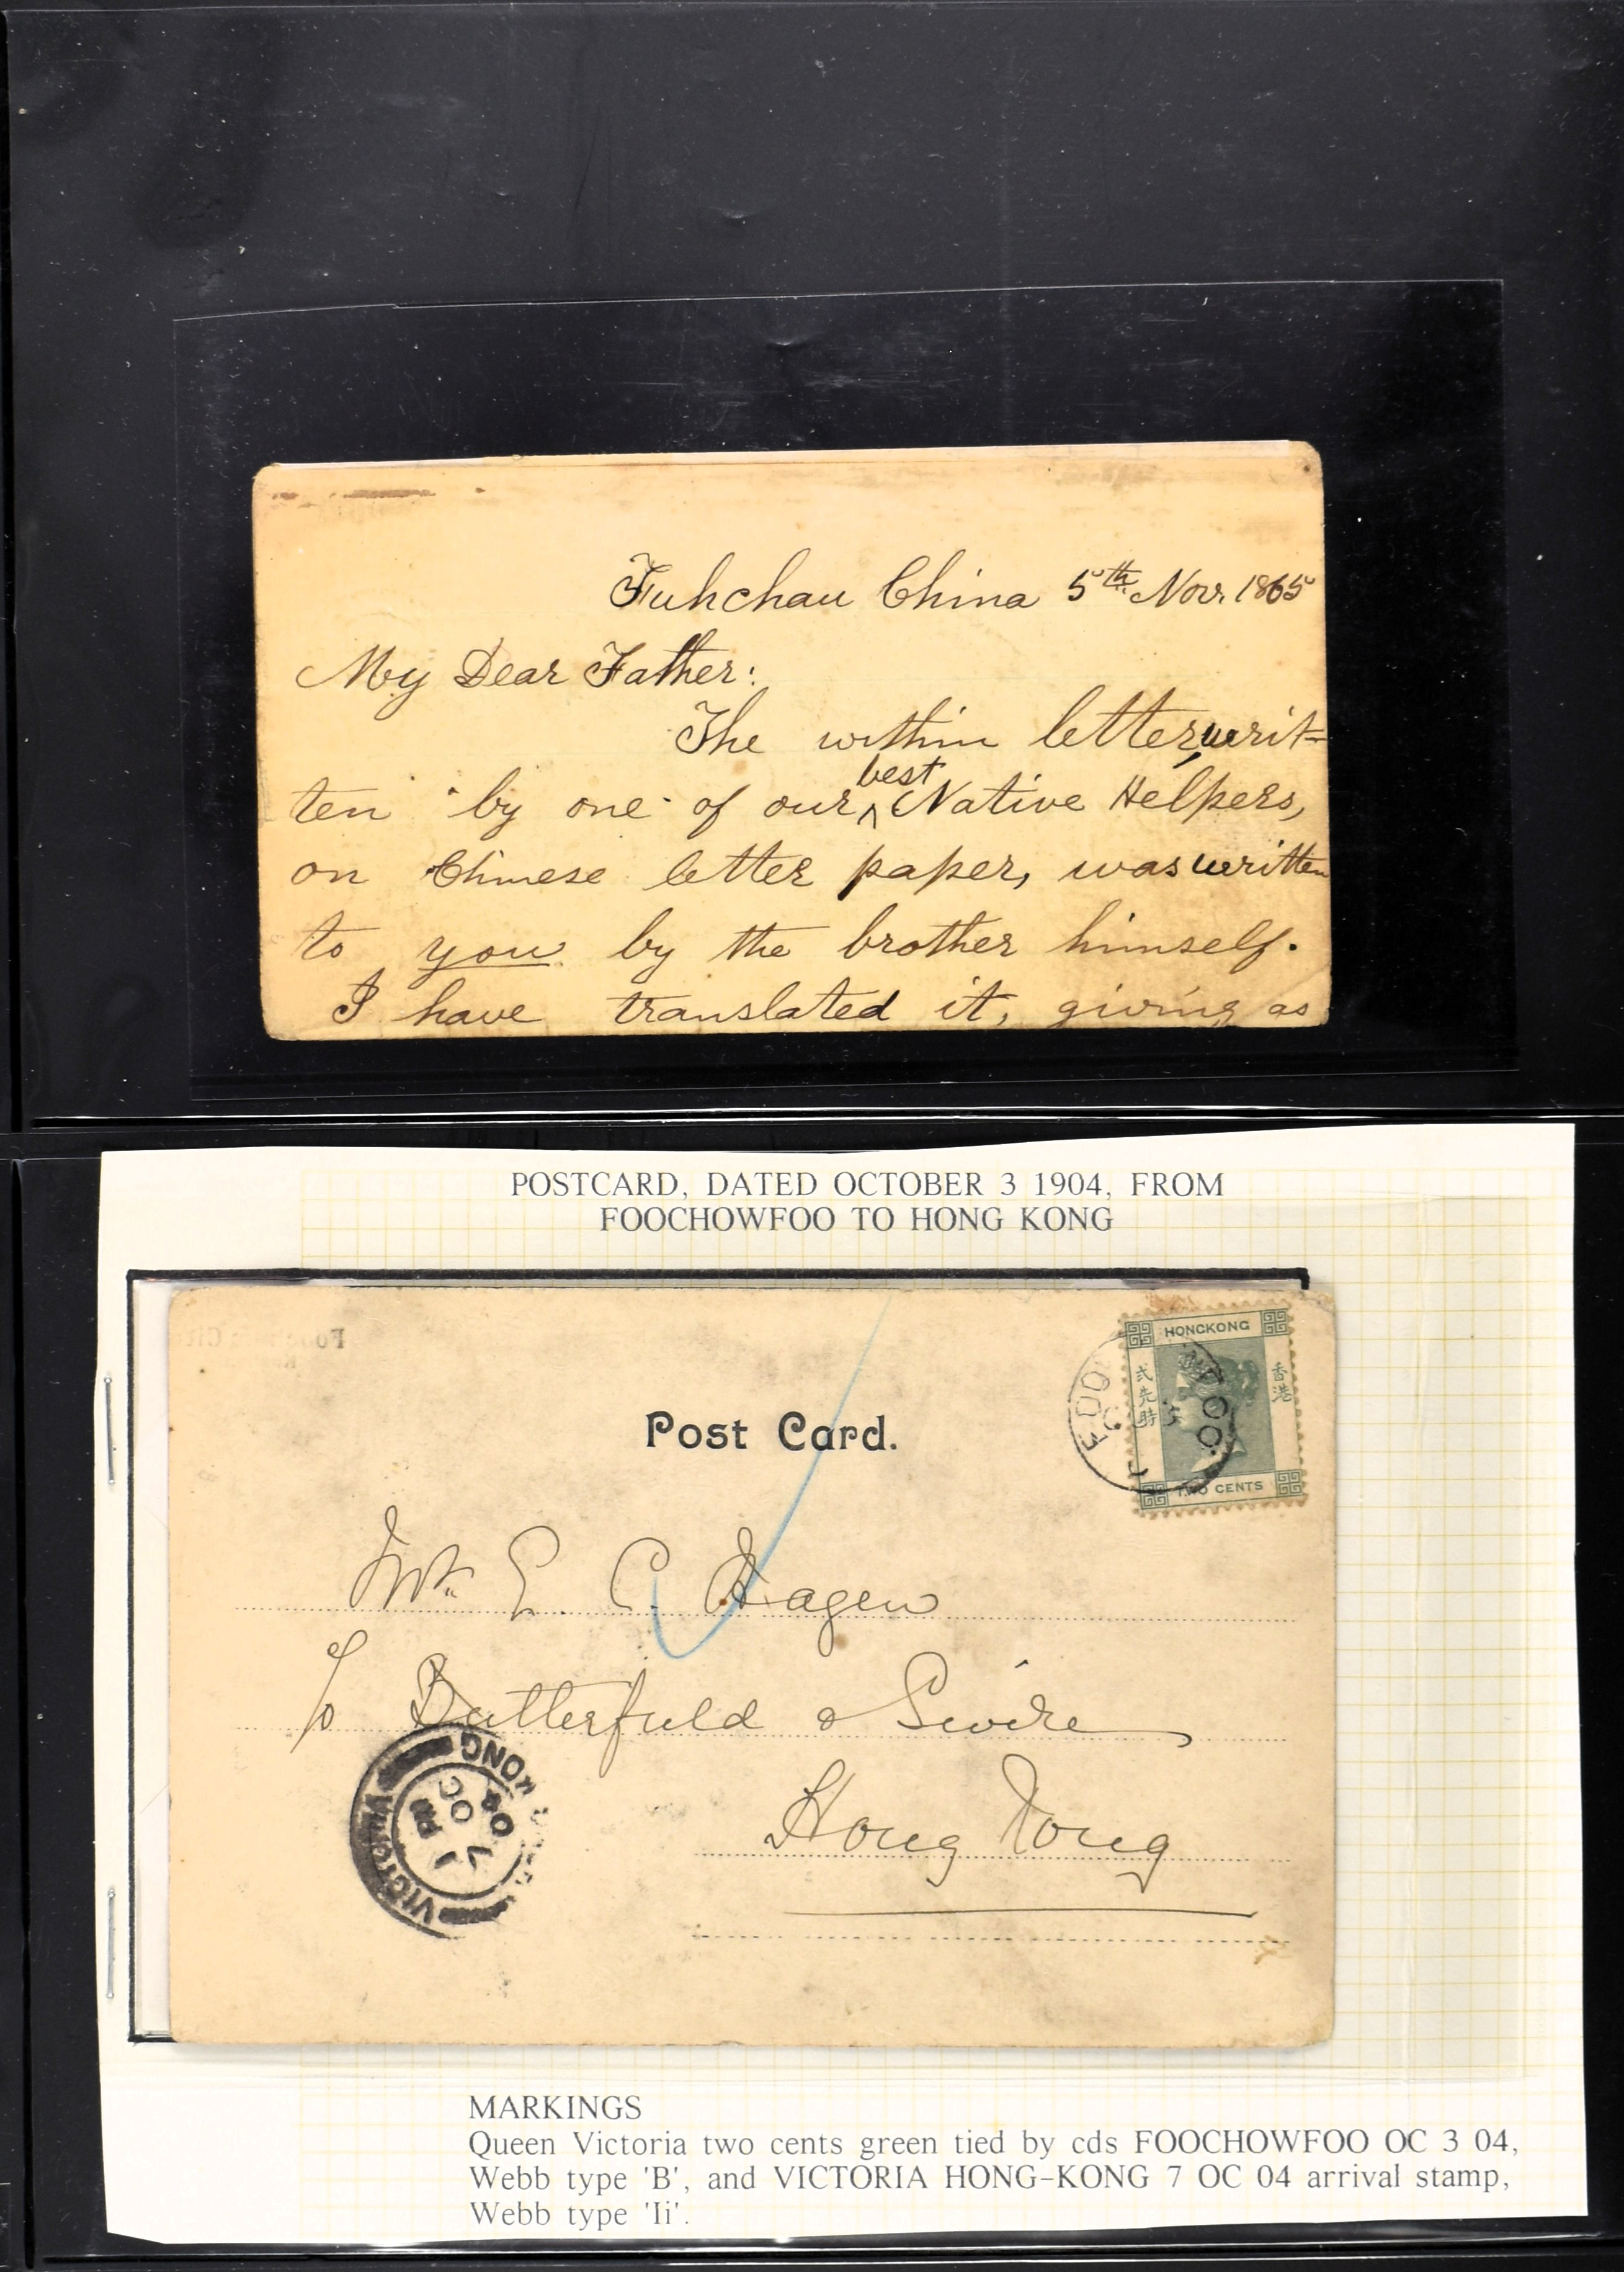 Fuhchau China 5th Nov. 1865
My Dear Father:
The within letter, writ-
ten by one of our best Native Helpers,
on Chinese letter paper, was written
to you by the brother himself.
I have translated it, giving as
POSTCARD, DATED OCTOBER 3 1904, FROM
FOOCHOWFOO TO HONG KONG
Post Card.
HONGKONG
香港
TWO CENTS
Mr. E. C. Hagen
c/o Butterfield & Swire
Hong Kong
VICTORIA
KONG
1 PM
7 OC
04
MARKINGS
Queen Victoria two cents green tied by cds FOOCHOWFOO OC 3 04,
Webb type 'B', and VICTORIA HONG-KONG 7 OC 04 arrival stamp,
Webb type 'Ii'.